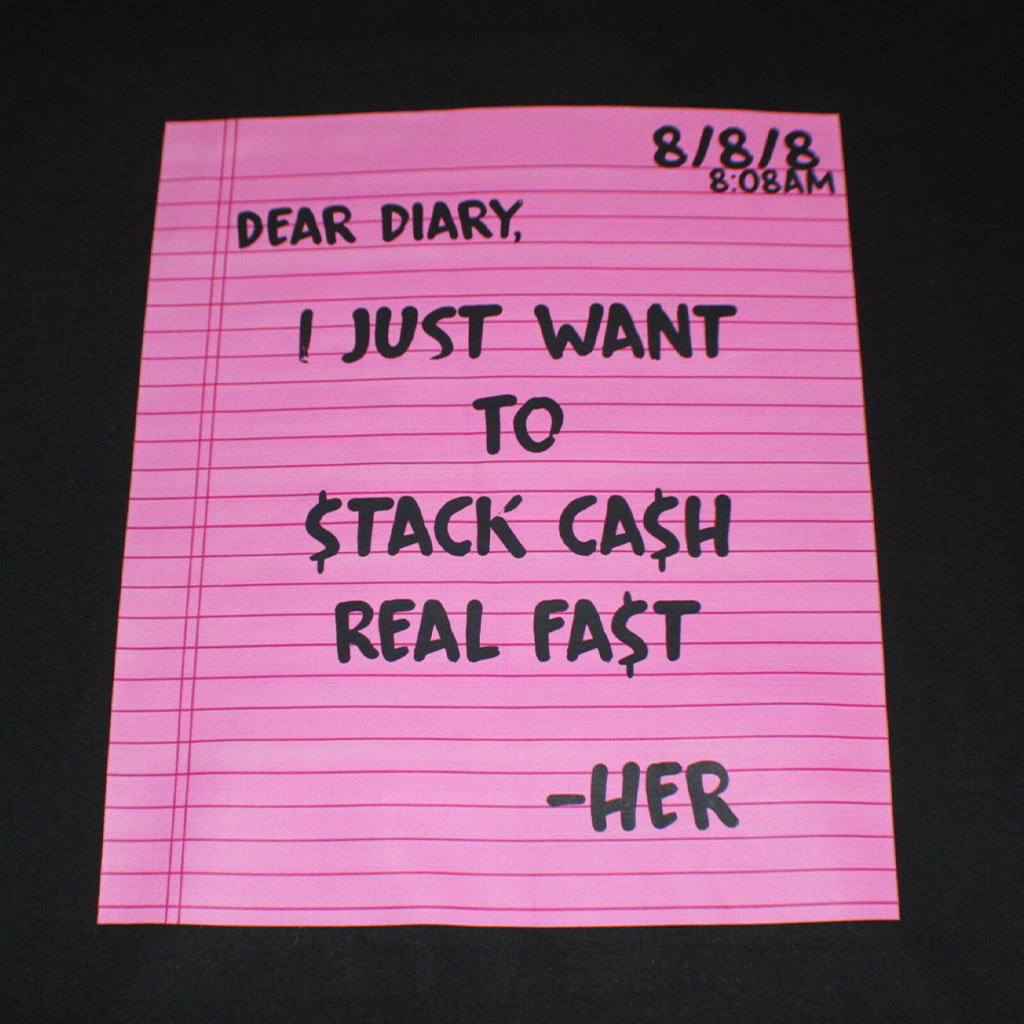 8/8/8
8:08AM
DEAR DIARY,
I JUST WANT
TO
$TACK CA$H
REAL FA$T
-HER